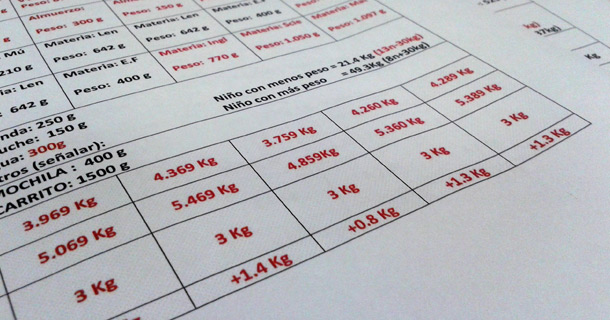 Almuerzo:
Peso: 300 g
Peso: 150 g
Materia: Len
Peso: 642 g
Materia: Len
Peso: 642 g
Peso: 400 g
210 g
Materia: E.F
Peso: 400 g
Materia: Ingl
Peso: 770 g
Peso: 1.050 g
Peso: 1.097 g
Len
: 642 g
Niño con menos peso = 21.4 Kg (13n-30kg)
Niño con más peso = 49.3Kg (8n+30kg)
kg)
37kg)
Kg
: 250 g
: 150 g
300g
(señalar):
MOCHILA : 400 g
CARRITO: 1500 g
3.969 Kg 4.369 Kg 3.759 Kg 4.260 Kg 4.289 Kg
5.069 Kg 5.469 Kg 4.859Kg 5.360 Kg 5.389 Kg
3 Kg 3 Kg 3 Kg 3 Kg 3 Kg
+1.4 Kg +0.8 Kg +1.3 Kg +1.3 Kg